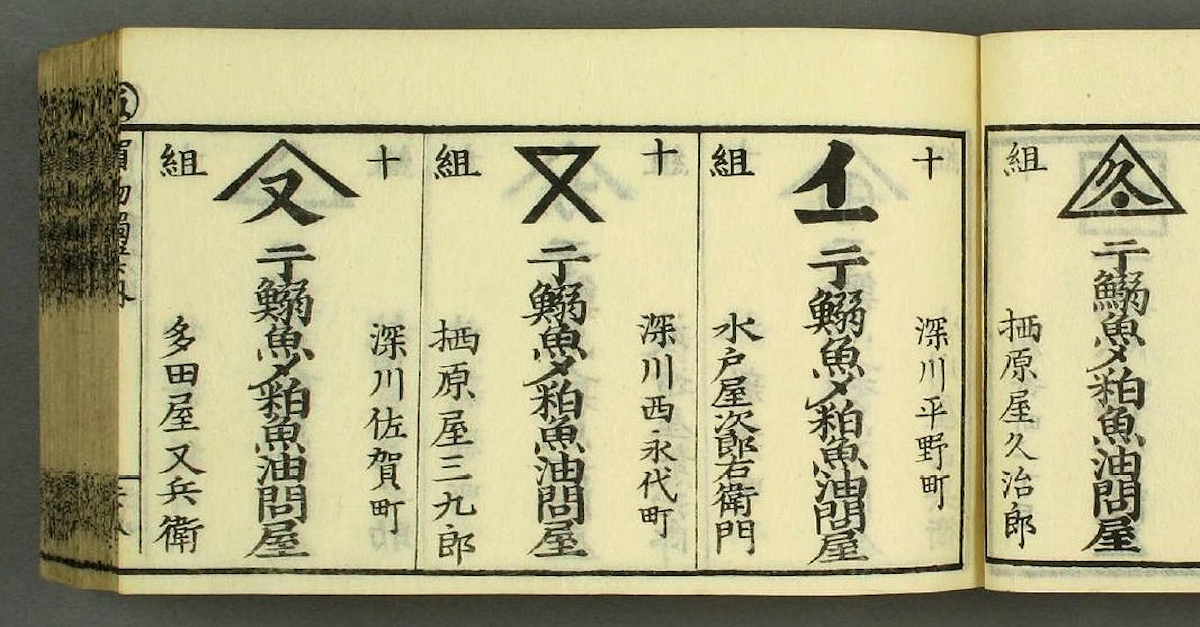 組
久
干鰯魚〆粕魚油問屋
栖原屋久治郎
十
組
深川平野町
イ一
干鰯魚〆粕魚油問屋
水戸屋次郎右衛門
十
組
深川西永代町
干鰯魚〆粕魚油問屋
栖原屋三九郎
十
組
深川佐賀町
又
干鰯魚〆粕魚油問屋
多田屋又兵衛